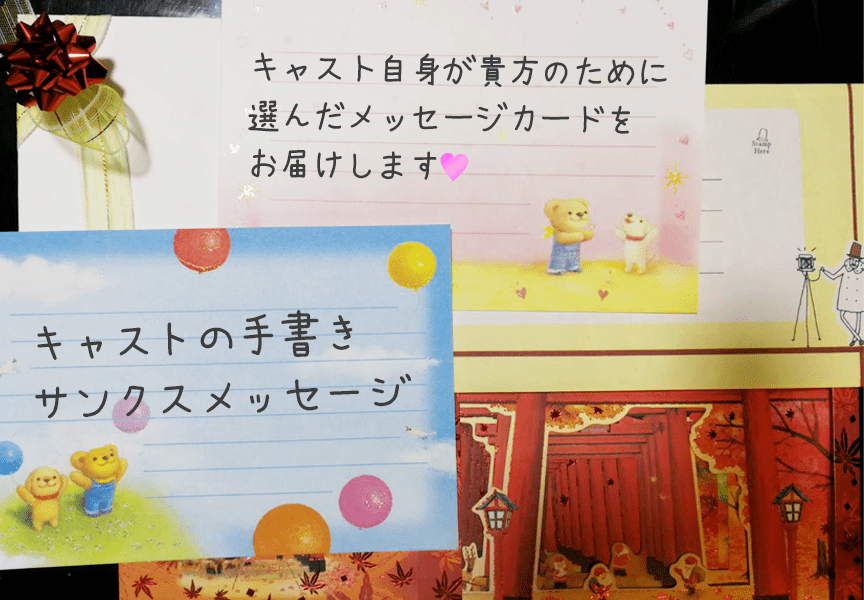 キャスト自身が貴方のために
選んだメッセージカードを
お届けします
Stamp
Here
キャストの手書き
サンクスメッセージ